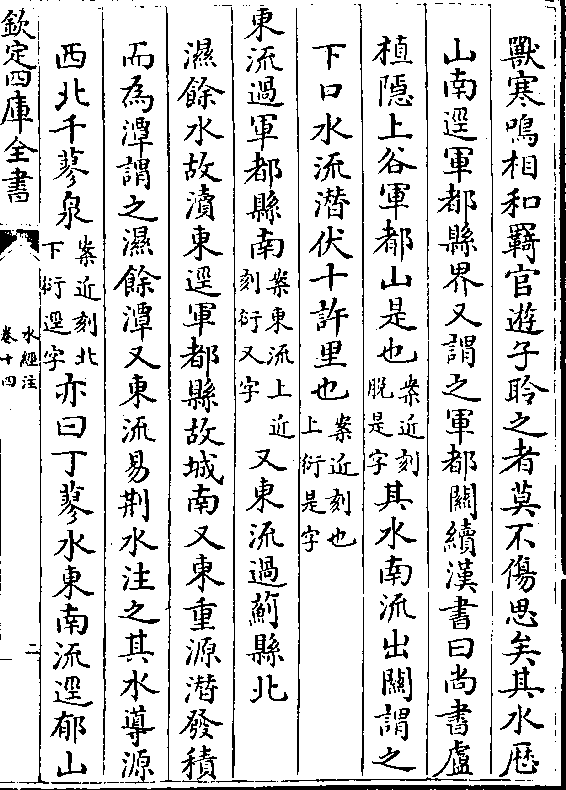 獸寒鳴相和羇官遊子聆之者莫不傷思矣其水歴
山南逕軍都縣界又謂之軍都關續漢書曰尚書盧
植隱上谷軍都山是也案近刻脫是字其水南流出關謂之
下口水流潛伏十許里也案近刻也上衍是字
東流過軍都縣南案東流上近刻衍又字又東流過薊縣北
濕餘水故瀆東逕軍都縣故城南又東重源潛發積
而為潭謂之濕餘潭又東流易荆水注之其水導源
西北千蓼泉案近刻北下衍逕字亦曰丁蓼水東南流逕郁山
欽定四庫全書
水經注
卷十四
二